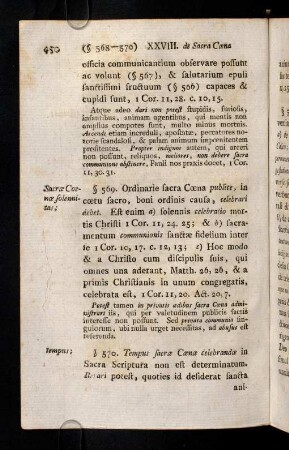 450 (§ 568—570) XXVIII. de Sacra Cœna
officia communicantium observare possunt
ac volunt (§ 567), & salutarium epuli
sanctissimi fructuum (§ 506) capaces &
cupidi sunt, 1 Cor. 11, 28. c. 10, 15.
Atque adeo dari non potest stupidis, furiosis,
infantibus, animam agentibus, qui mentis non
amplius compotes sunt, multo minus mortuis.
Arcendi etiam increduli, apostatæ, peccatores no-
torie scandalosi, & palam animum impœnitentem
profitentes. Propter indignos autem, qui arceri
non possunt, reliquos, meliores, non debere sacra
communione abstinere, Pauli nos praxis docet, 1 Cor.
11, 30. 31.
Sacræ Cœ-
næ solenni-
tas;
§ 569. Ordinarie sacra Cœna publice, in
cœtu sacro, boni ordinis causa, celebrari
debet. Est enim a) solennis celebratio mor-
tis Christi 1 Cor. 11, 24. 25; & b) sacra-
mentum communionis sanctæ fidelium inter
se 1 Cor. 10, 17. c. 12, 13; c) Hoc modo
& a Christo cum discipulis suis, qui
omnes una aderant, Matth. 26, 26, & a
primis Christianis in unum congregatis,
celebrata est, 1 Cor. 11, 20. Act. 20, 7.
Potest tamen in privatis ædibus sacra Cœna admi-
nistrari iis, qui per valetudinem publicis sacris
interesse non possunt. Sed privata communio sin-
gulorum, ubi nulla urget necessitas, ad abusus est
referenda.
tempus;
§ 570. Tempus sacræ Cœnæ celebrandæ in
Sacra Scriptura non est determinatum.
Iterari potest, quoties id desiderat sancta
ani-